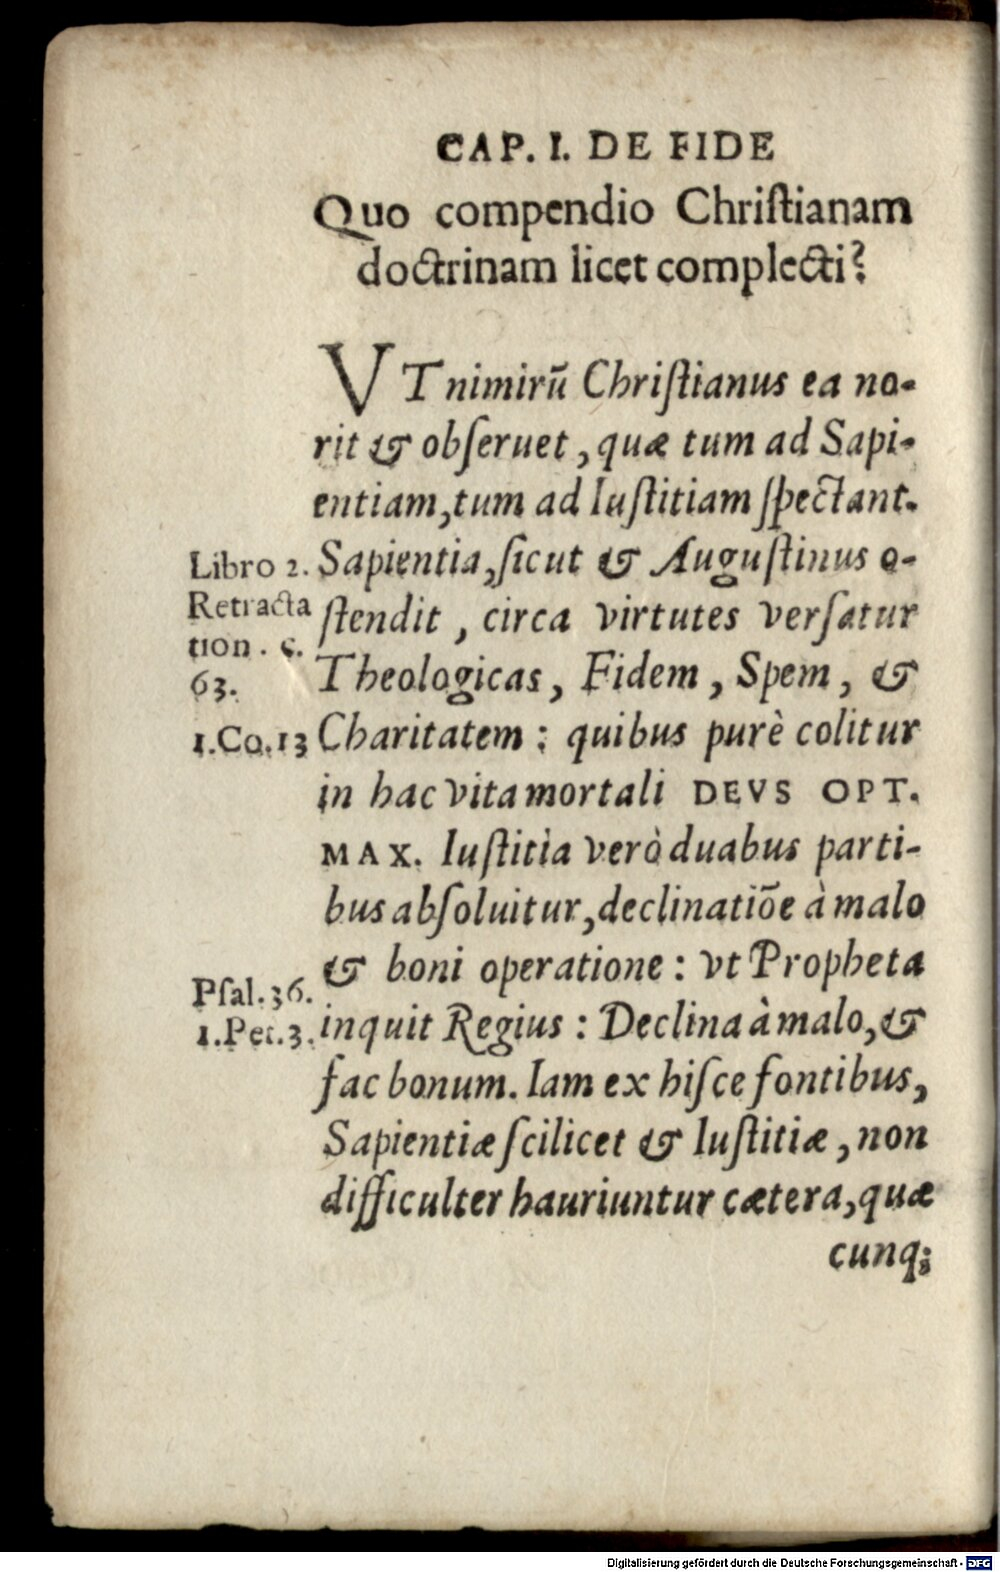 CAP. I. DE FIDE
Quo compendio Chriſtianam
doctrinam licet complecti?
VT nimirū Chriſtianus ea no-
rit & obſeruet, quæ tum ad Sapi-
entiam, tum ad Iuſtitiam ſpectant.
Libro 2.
Retracta
tion. c.
63.
Sapientia, ſicut & Auguſtinus o-
ſtendit, circa virtutes verſatur
Theologicas, Fidem, Spem, &
1.Co.13
Charitatem: quibus purè colitur
in hac vita mortali DEVS OPT.
MAX. Iuſtitia verò duabus parti-
bus abſoluitur, declinatiōe à malo
& boni operatione: vt Propheta
Pſal.36.
1.Pet.3.
inquit Regius: Declina à malo, &
fac bonum. Iam ex hiſce fontibus,
Sapientiæ ſcilicet & Iuſtitiæ, non
difficulter hauriuntur cætera, quæ
cunq;
Digitalisierung gefördert durch die Deutsche Forschungsgemeinschaft - DFG